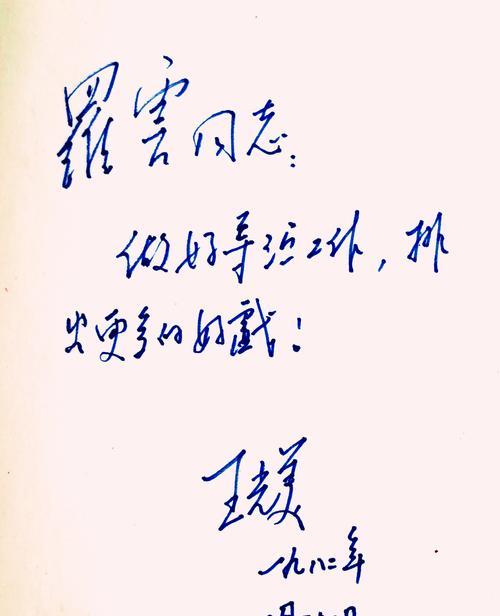 羅雲同志：
做好导演工作，排
出更多的好戲！
王光美
一九八二年